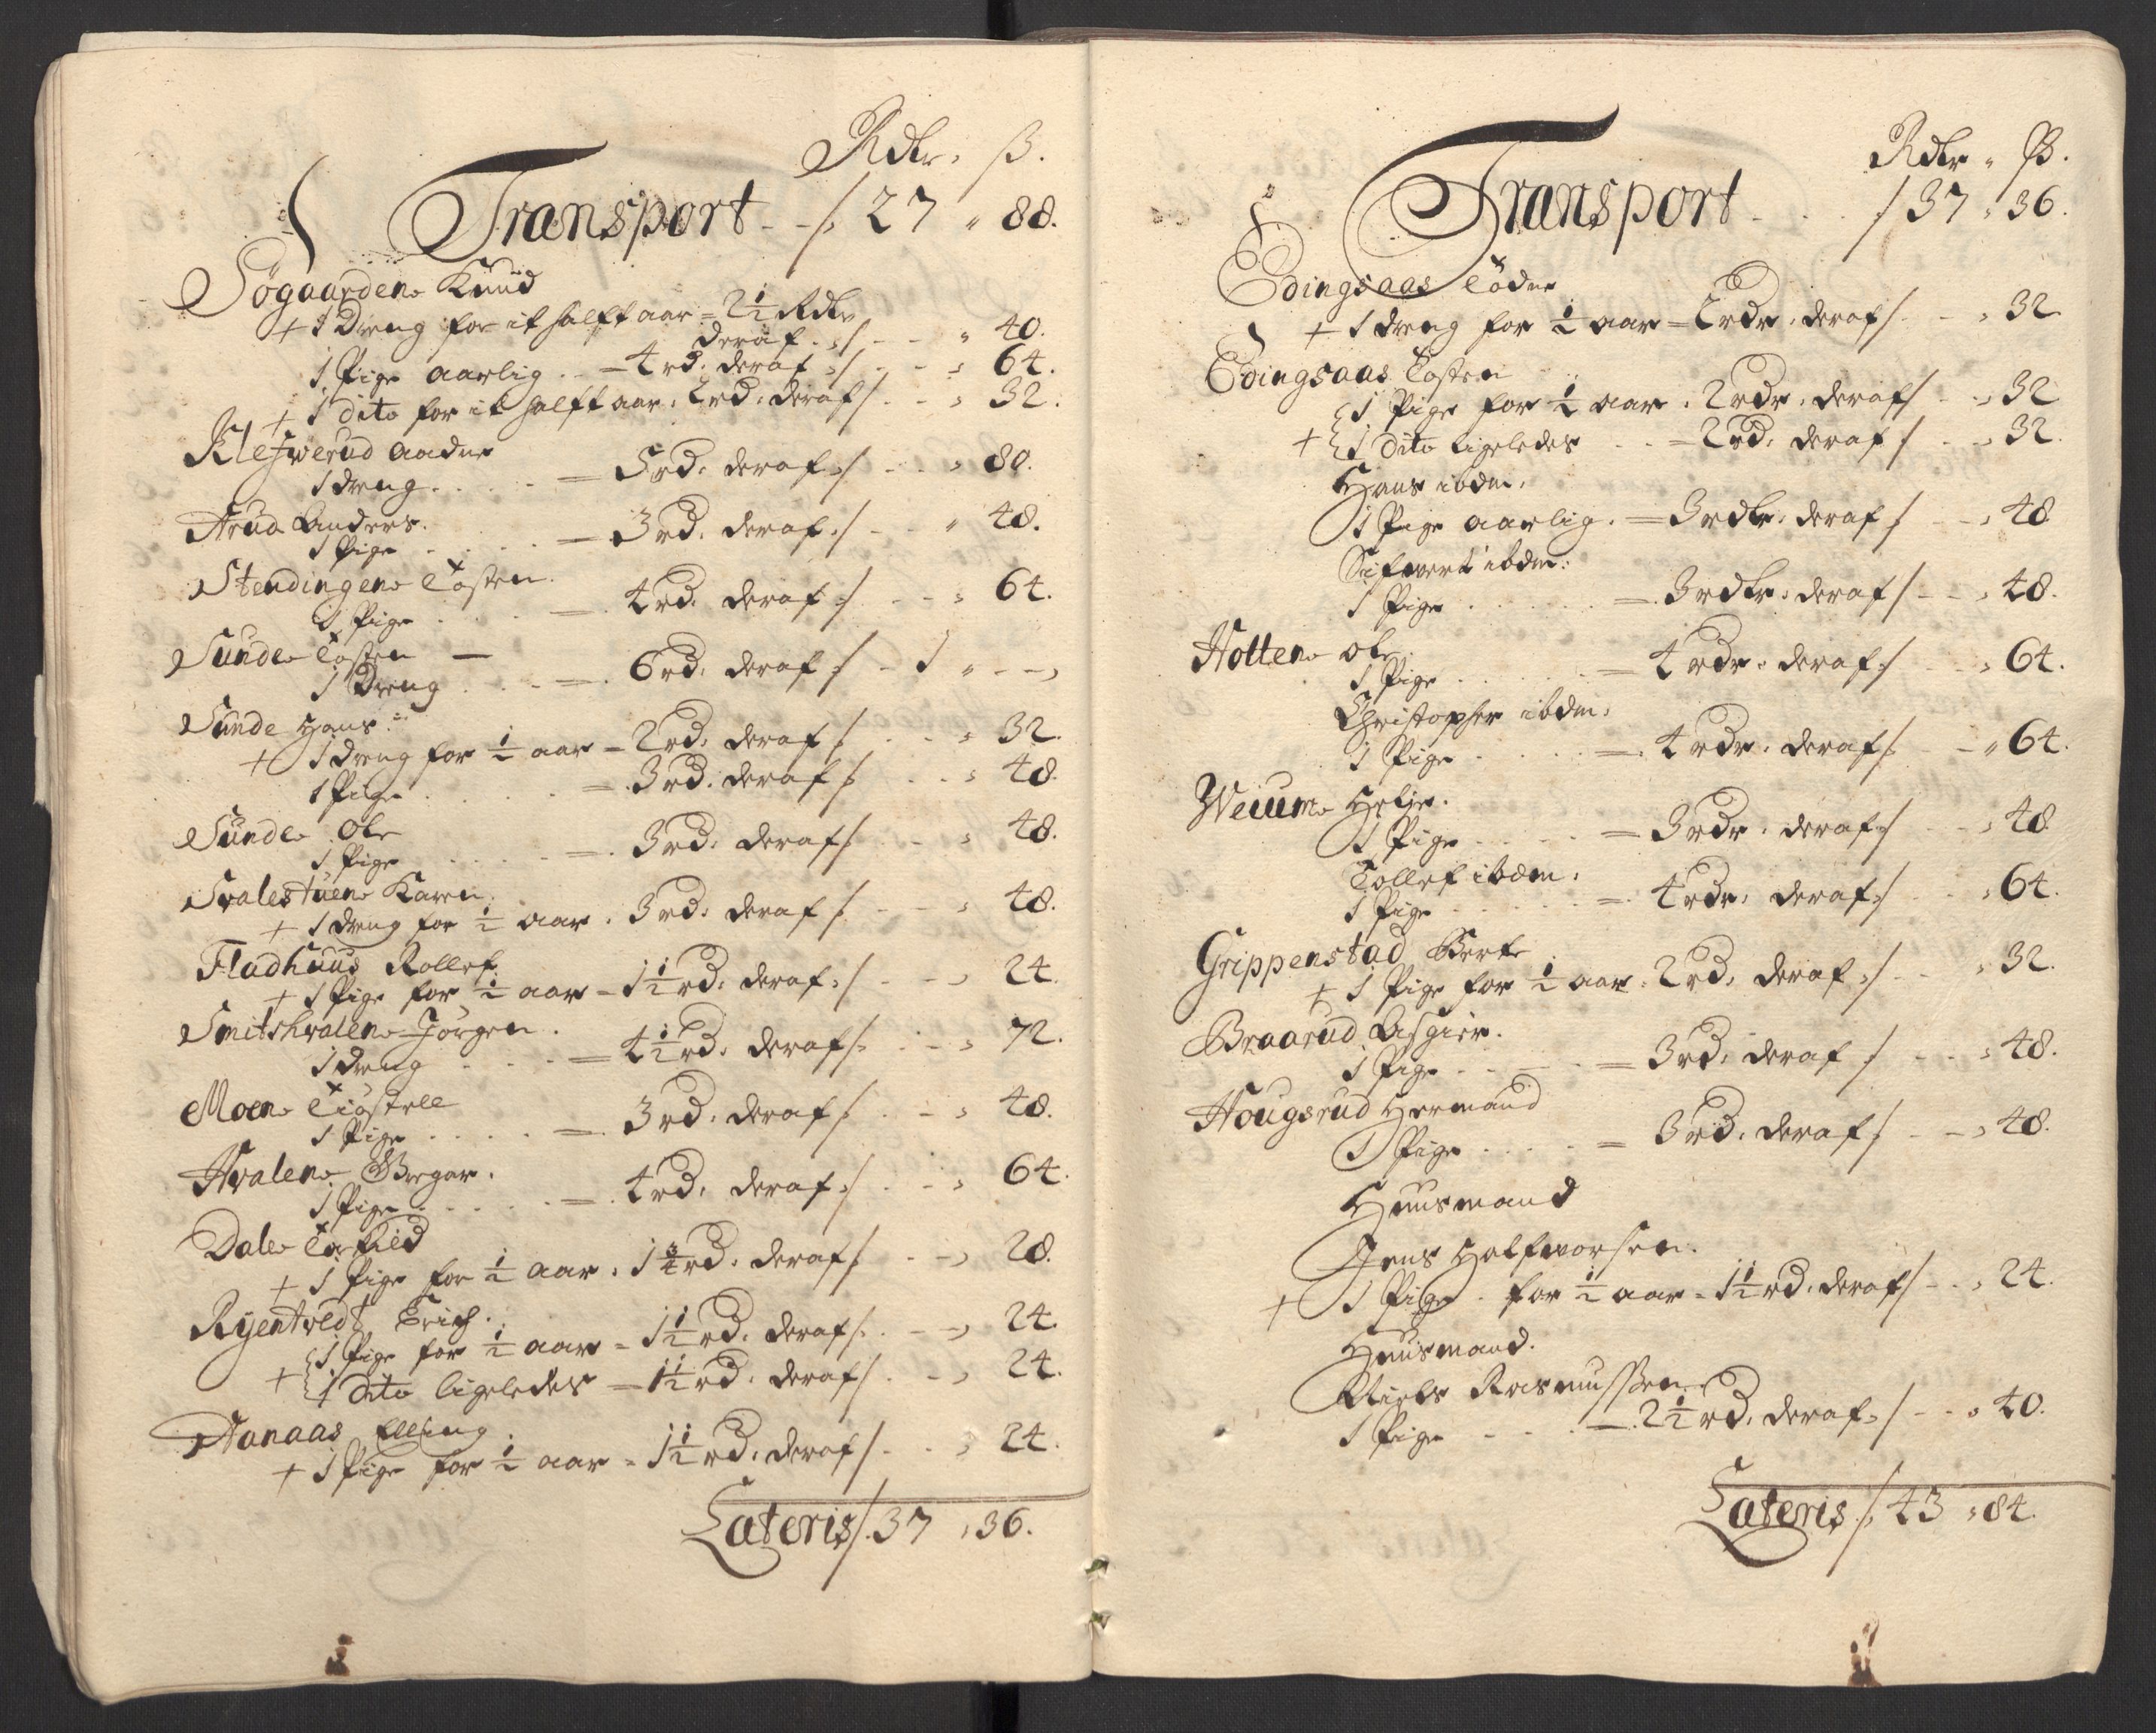 Rdlr. ß.
Transport - -/. 27 " 88.
Søgaarden Knud
+ 1 Dreng for it halft aar = 2 1/2 Rdlr
deraf ./. - - " 40.
1 Pige aarlig .. = 4 rd. deraf ./. - - " 64.
+ 1 dito for it halft aar. 2 rd. deraf /. - - " 32.
Klefwerud Aadne
1 dreng . . . . = 5 rd. deraf ./. - - " 80.
Arud Anders.
1 Pige . . . . = 3 rd. deraf ./. - - " 48.
Stendingen Tosten.
1 Pige . . . . = 4 rd. deraf ./. - - " 64.
Sunde Tosten —
1 Dreng . . . = 6 rd. deraf ./. - 1 " - -
Sunde Hans.
+ 1 dreng for 1/2 aar = 2 rd. deraf /. - - " 32.
1 Pige . . . . = 3 rd. deraf /. - - " 48
Sunde Ole
1 Pige . . . . = 3 rd. deraf /. - - " 48.
Svalestuen Karen.
+ 1 dreng for 1/2 aar. 3 rd. deraf /. - - " 48.
Fladhuus Rollef.
+ 1 Pige for 1/2 aar = 1 1/2 rd. deraf ./. - - " 24.
Smitshvalen Jörgen.
1 dreng . . . = 4 1/2 rd. deraf /. - - " 72.
Moen Kiöstell
1 Pige . . . . = 3 rd. deraf /. - - " 48.
Hvalen Gregar.
1 Pige . . . . = 4 rd. deraf ./. - - " 64.
Dale Tarkild
+ 1 Pige for 1/2 aar. 1 3/4 rd. deraf /. - - " 28.
Ryentvedt Erich.
1 Pige for 1/2 aar = 1 1/2 rd. deraf /. - - " 24.
+ 1 dito ligeledes = 1 1/2 rd. deraf /. - - " 24.
Aanaas Elling.
+ 1 Pige for 1/2 aar = 1 1/2 rd. deraf /. - - " 24.
Lateris /. 37 " 36.
Rdlr " ß.
Transport . . . /. 37 " 36.
Edingsaas Todne
+ 1 dreng for 1/2 aar = 2 rdr. deraf /. - - " 32
Edingsaas Tosten
1 Pige for 1/2 aar. 2 rdr. deraf /. - - " 32
+ 1 dito ligeledes - = 2 rd. deraf ./. - - " 32.
Hans ibdm.
1 Pige aarlig. = 3 rdlr. deraf ./. - - " 48
Sifwert ibdm:
1 Pige . . . . = 3 rdlr. deraf /. - - " 48.
Holten Ole.
1 Pige . . . . = 4 rdr. deraf ./. - - " 64.
Christopher ibdm.
1 Pige . . . . = 4 rdr. deraf /. - - " 64.
Weium Helje.
1 Pige . . . . = 3 rdr. deraf ./. - - " 48
Tollef ibdm.
1 Pige . . . . = 4 rdr. deraf ./. - - " 64.
Grippenstad Berte
+ 1 Pige for 1/2 aar. 2 rd. deraf ./. - - " 32.
Braarud Asgier.
1 Pige . . . . = 3 rd. deraf ./. - - " 48.
Hougsrud Hermand
1 Pige . . . . = 3 rd. deraf ./. - - " 48.
Huusmand
Jens Halfvorsen.
+ 1 Pige . for 1/2 aar = 1 1/2 rd. deraf /. - - " 24.
Huusmand.
Niels Rasmussen
1 Pige - - - = 2 1/2 rd. deraf ./. - - " 40.
Lateris /. 43 " 84.